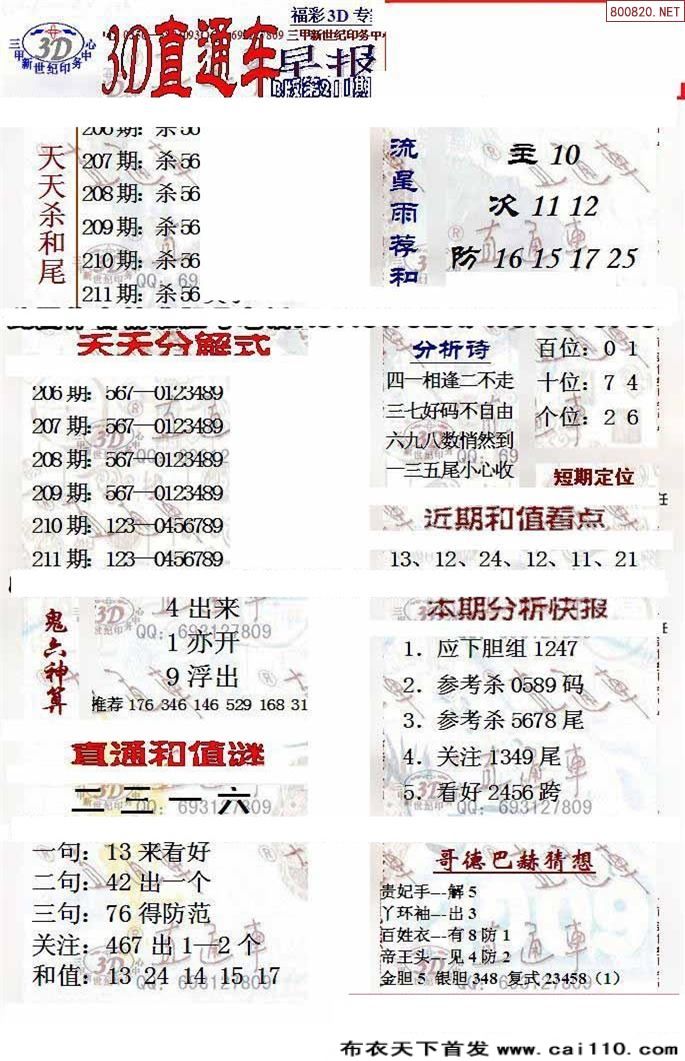 800820.NET
福彩3D专
三甲 3D 中心
新世纪印务
3D直通车
早报
三甲新世纪印务中心
第211期
天天杀和尾
206期：杀56
207期：杀56
208期：杀56
209期：杀56
210期：杀56
211期：杀56
流星雨荐和
主 10
次 11 12
防 16 15 17 25
天天分解式
206期：567—0123489
207期：567—0123489
208期：567—0123489
209期：567—0123489
210期：123—0456789
211期：123—0456789
分析诗
四一相逢二不走
三七好码不自由
六九八数悄然到
一三五尾小心收
百位：0 1
十位：7 4
个位：2 6
短期定位
近期和值看点
13、12、24、12、11、21
鬼六神算
4出来
1亦开
9浮出
推荐 176 346 146 529 168 31
本期分析快报
1．应下胆组1247
2．参考杀0589码
3．参考杀5678尾
4．关注1349尾
5．看好2456跨
直通和值谜
二三一六
一句：13来看好
二句：42出一个
三句：76得防范
关注：467出1—2个
和值：13 24 14 15 17
哥德巴赫猜想
贵妃手---解5
丫环袖---出3
百姓衣---有8防1
帝王头---见4防2
金胆5 银胆348 复式23458（1）
QQ：693127809
直通車
布衣天下首发 www.cai110.com